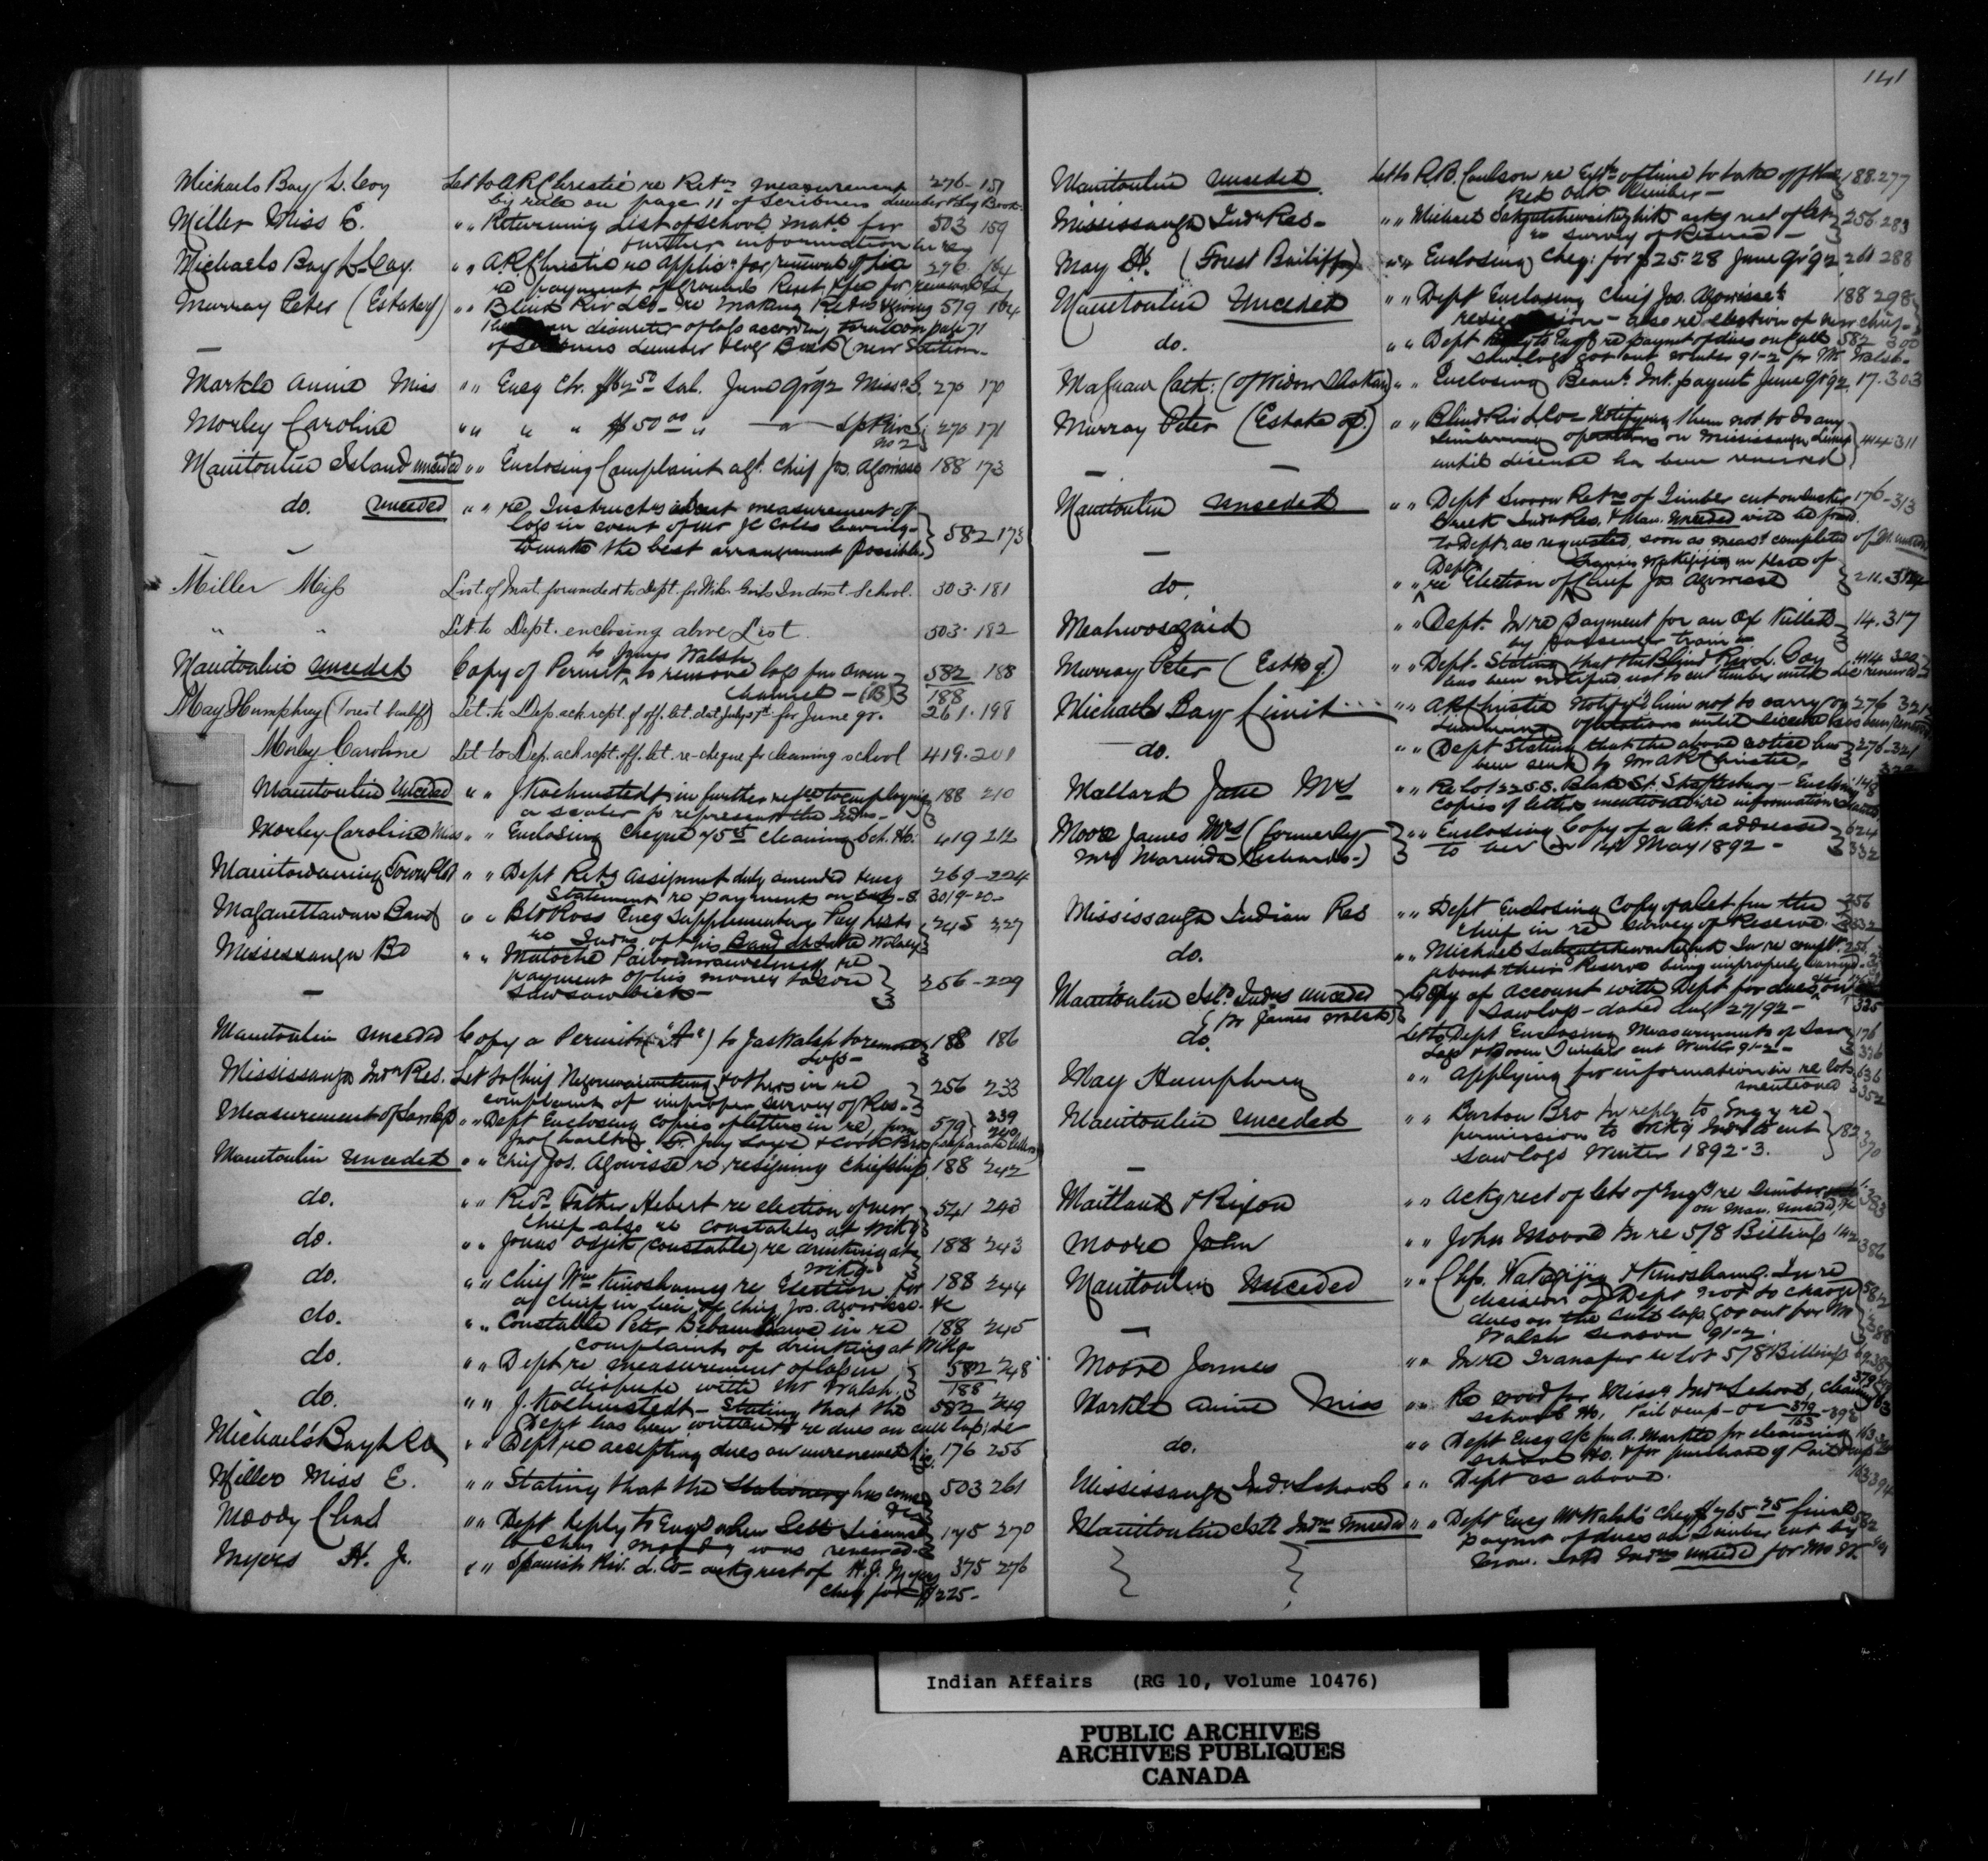 141
Michaels Bay L. Coy Let to A R Christie re Retns measurement 276 - 151
by rule on page 11 of Scribners Lumber & Log Book
Miller Miss E. " " Returning list of school matl for 503 159
further information
Michaels Bay L. Coy. " " A R Christie re Applicn for renewal of lic 276. 164
re payment of Grounds Rent & fee for renewal
Murray Peter (Estate of) " " Blind Riv L Co - re making Retns 579 164
diameter of logs according page 71
of Scribners Lumber & Log Book (new Edition -
Markle Annie Miss " " Encg Ch. $62.50 Sal. June Qr 92 Miss. S. 270 170
Morley Caroline " " " " $50.00 " — " — Sp Riv S No 2 270 171
Manitoulin Island unceded " " Enclosing Complaint agt. Chief Jos. Agowissa 188 173
do. Unceded " " re Instructns about measurement of
logs in event of Mr J C Coles leaving -
to make the best arrangement possible 582 173
Miller Miss List of Mat. forwarded to Dept. for Wik. Girls Indust. School. 503. 181
" " Let to Dept. enclosing above List 503. 182
to James Walsh
Manitoulin Unceded Copy of Permit to remove logs from Owen 582 188
Channel - (B) 188
May Humphrey (Forest bailiff) Let. to Dep. ack rept. of off. let. dat July 27th for June qr. 261. 198
Morley Caroline Let to Dep. ack rept. off. let. re-cheque for cleaning school 419. 201
Manitoulin Unceded " " J Kochmstedt in further refce to employing 188 210
a scaler to represent the Indns -
Morley Caroline Miss " " Enclosing Cheque $7.50 cleaning Sch. Ho. 419 212
Manitowaning Town Plot " " Dept Retg Assignment duly amended & encg 269 - 224
Statement re payments on 30/9-20-
Maganettawan Band " " B W Ross Encg Supplementary Pay lists 245 227
re Indns of this Band
Mississauga Bd " " re
payment of his money to son 256 - 229
Sawsawbick -
Manitoulin Unceded Copy a Permit ("A") to Jas Walsh to remove 188 186
Logs -
Mississauga Indn Res. Let to Chief & others in re 256 233
complaint of improper survey of Res. -
Measurement of Sawlogs " " Dept Enclosing copies of letters in re from 579 239
Jno Charlton & Cook Bros (separate letters) 240
Manitoulin Unceded " " Chief Jos. Agowissa re resigning Chiefship 188 242
do. " " Revd. Father Hebert re election of new 541 243
Chief also re constables at Wikg
do. " " Jonas Odjik (constable) re drinking at 188 243
Wikg -
do. " " Chief Wm Kinoshameg re Election for 188 244
of Chief in lieu of Chief Jos. Agowissa - &c
do. " " Constable Peter in re 188 245
complaints of drinking at Wikg -
do. " " Dept re measurement of logs in 582 248
dispute with Mr Walsh. 188
do. " " J. Kochmstedt - Stating that the 582 249
Dept has been written to re dues on cull logs; &c
Michael's Bay L Co " " Dept re accepting dues on unrenewed lic. 176 255
Miller Miss E. " " Stating that the Stationery has come 503 261
Moody Chas " " Dept Reply to Enq when License 175 270
to Chas Moody was renewed -
Myers H. J. " " Spanish Riv. L. Co - ackg rect of H. J. Myers 375 276
cheq for $225 -
Manitoulin Unceded. Let to R. B. Coulson re Extn of time to take off the 188. 277
Red Oak timber -
Mississauga Indn Res - " " Michael ackg rect of let 256. 283
re survey of Reserve -
May H. (Forest Bailiff) " " Enclosing Cheq: for $25.28 June Qr 92 261 288
Manitoulin Unceded " " Dept Enclosing Chief Jos. Agowissa's 188 298
resignation - also re election of new chief -
do. " " Dept Reply to Enq re paymt of dues on Cull 582 300
saw logs got out winter 91-2 for Mr Walsh -
Cath: (of Widow) " " Enclosing Beau't. Int. paymt June Qr 92. 17. 303
Murray Peter (Estate of.) " " Blind Riv L Co - Notifying them not to do any
lumbering operations on Mississauga limit 414 311
until license has been renewed
Manitoulin Unceded " " Dept Sworn Retns of Timber cut on Sucker 176 - 313
Creek Indn Res, & Man. Unceded will be frwd.
to Dept, as requested, soon as meast completed of M. unceded
Dept. Francis Wakigijig in place of
do. " " re Election of Chief Jos Agowissa 211.
" " Dept. In re payment for an Ox Killed 14. 317
by passenger train -
Murray Peter (Est of.) " " Dept - Stating that the Blind River L. Coy 414 320
has been notified not to cut timber until lic renewed
Michaels Bay Limit " " A R Christie Notifyg him not to carry on 276 321
lumbering operations until license has been renewed
do. " " Dept Stating that the above notice has 276 - 321
been sent to Mr A R Christie -
Mallard Jane Mrs " " Re Lot 22 S.S. Blake St. Shaftesbury - Enclosing 148 322
Copies of letters mentioned re information
Moore James Mrs (formerly " " Enclosing Copy of a let. addressed 624
Mrs Marinda Richards -) to her on 14 May 1892 - 332
Mississauga Indian Res " " Dept Enclosing Copy of a let from the 256
Chief in re survey of Reserve - 332
do. " " Michael In re complt. 256
about their Reserve being improperly surveyed -
Manitoulin Isld. Indns unceded Copy of Account with Dept for dues on
(pr James Walsh) Sawlogs - dated Aug 27/92 - 325
do. Let to Dept Enclosing Measurements of Saw 176
logs & Boom Timber cut Winter 91-2 - 326
May Humphrey " " Applying for information in re lots 636
mentioned 352
Manitoulin Unceded " " Burton Bro In reply to Enqy re
permission to Wikg Indns to cut 182
saw logs Winter 1892-3. 370
Maitland & Rixon " " Ackg rect of lets of Enqy re timber
on Man. Unceded, &c 383
Moore John " " John Moore In re 5/8 Billings 142 386
Manitoulin Unceded " " Chfs. Wakigijig & Kinoshameg. In re
decision of Dept not to charge 582
dues on the cull logs got out for Mr 388
Walsh season 91-2.
Moore James " " In re Transfer re lot 5/8 Billings
Markle Annie Miss " " Re wood for Missa Indn School, cleaning
school Ho. Pail & cup - 379 163 - 393
do. " " Dept Encg a/c fm A. Markle for cleaning 163
school Ho. & for purchase of Pail & cup
Mississauga Indn School " " Dept as above. 163 394
Manitoulin Isld Indns Unceded " " Dept Encg Mr Walsh's Cheq $765.75 final 582
paymt of dues on Timber cut by
Man. Isld Indns unceded for Mr W
Indian Affairs (RG 10, Volume 10476)
PUBLIC ARCHIVES
ARCHIVES PUBLIQUES
CANADA